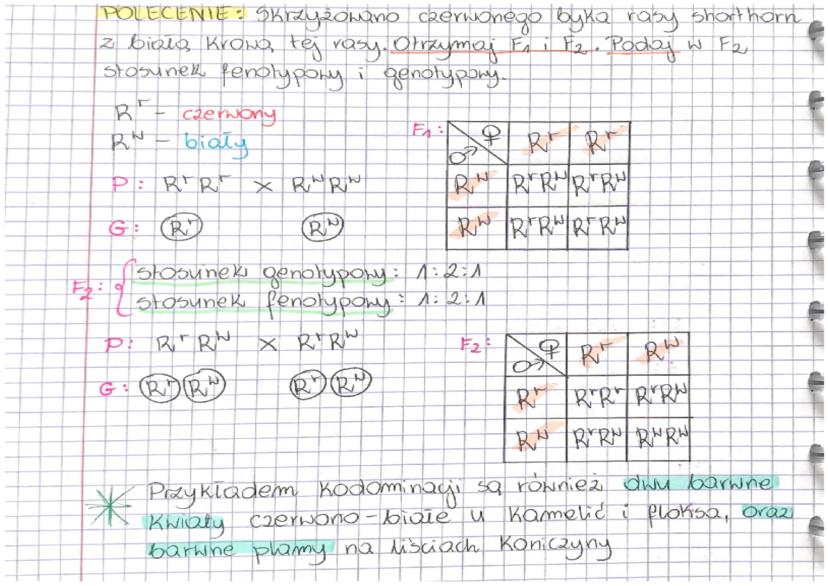 POLECENIE: Skrzyżowano czerwonego byka rasy shorthorn
z białą krową tej rasy. Otrzymaj F1 i F2. Podaj w F2
stosunek fenotypowy i genotypowy.
R^r - czerwony
R^w - biały
P: R^r R^r × R^w R^w
G: R^r R^w
F1: ♂ ♀ R^r R^r
R^w R^rR^w R^rR^w
R^w R^rR^w R^rR^w
F2: { stosunek genotypowy: 1:2:1
stosunek fenotypowy: 1:2:1
P: R^r R^w × R^r R^w
G: R^r R^w R^r R^w
F2: ♂ ♀ R^r R^w
R^r R^rR^r R^rR^w
R^w R^rR^w R^wR^w
Przykładem kodominacji są również dwu barwne
kwiaty czerwono-białe u kamelić i floksa, oraz
barwne plamy na liściach koniczyny